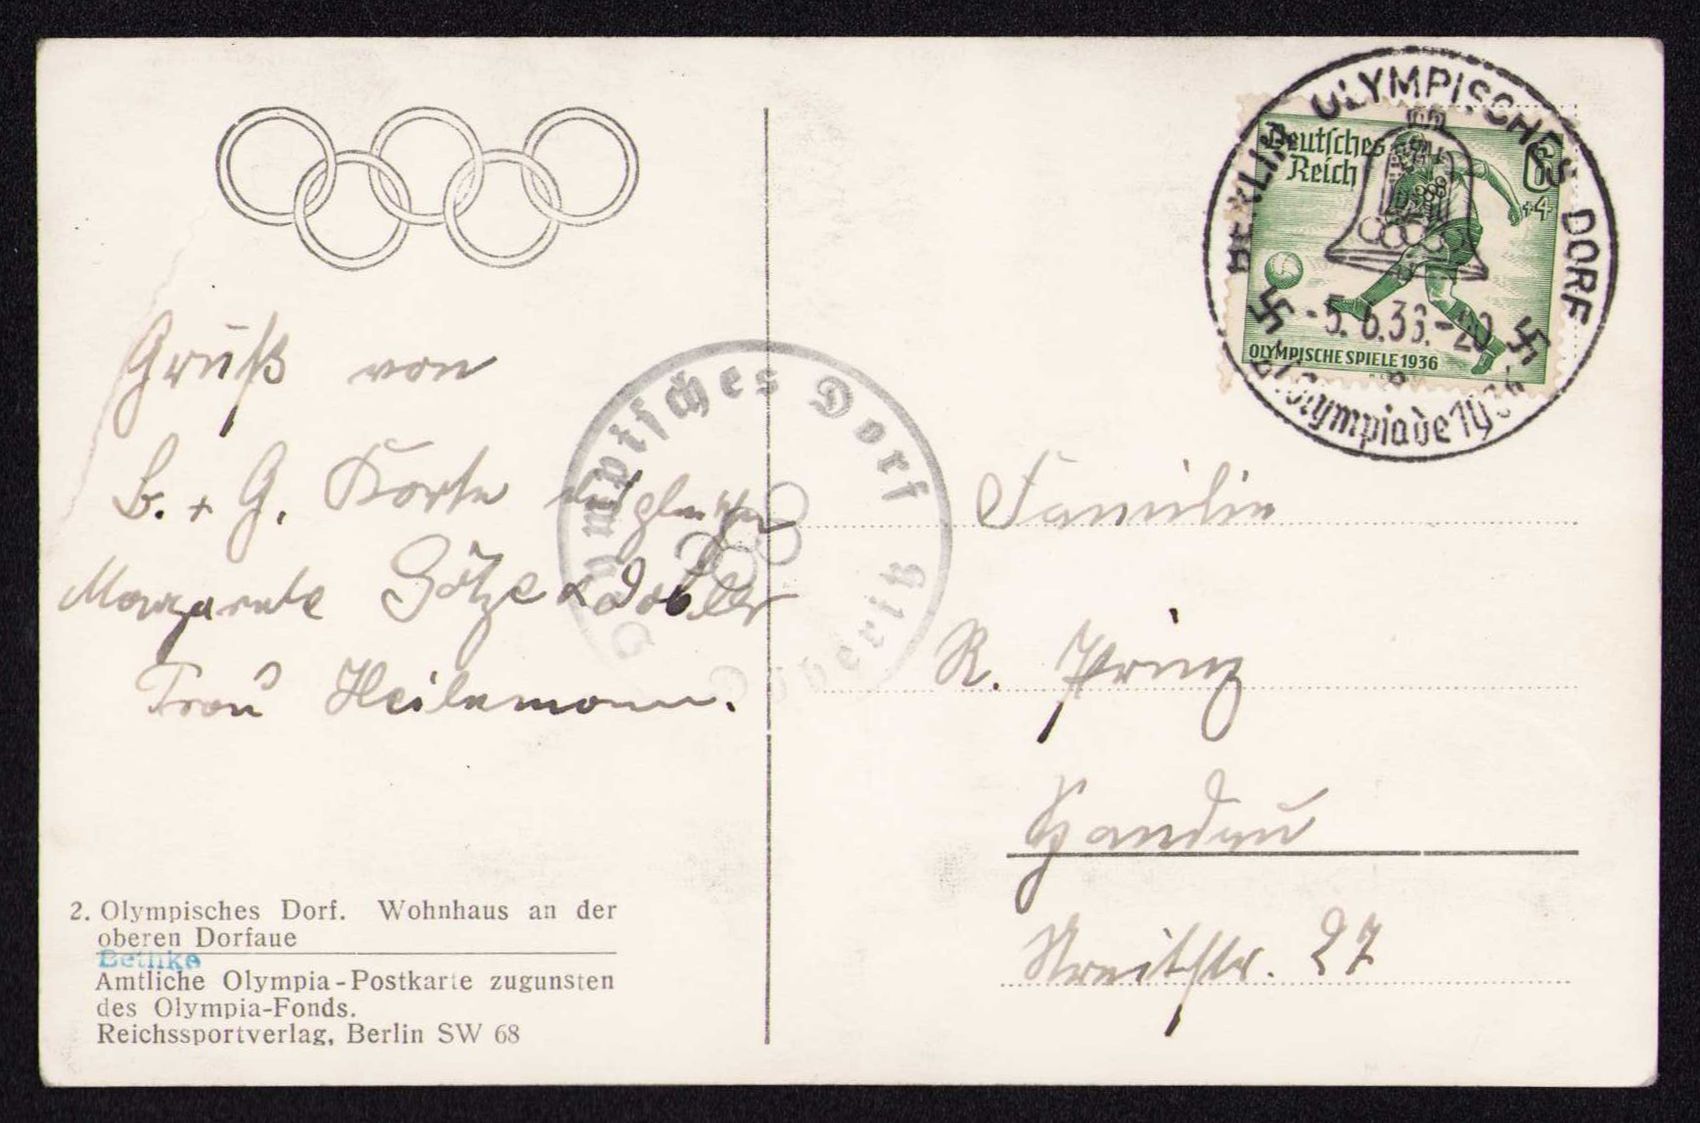 Gruß von
B. + G. Korte
Margarete Götze &
Frau Heilemann.
2. Olympisches Dorf. Wohnhaus an der
oberen Dorfaue
Bethke
Amtliche Olympia-Postkarte zugunsten
des Olympia-Fonds.
Reichssportverlag, Berlin SW 68
Olympisches Dorf
Döberitz
BERLIN OLYMPISCHES DORF
-5.6.36.-20
Olympiade 1936
Deutsches
Reich
6
+4
OLYMPISCHE SPIELE 1936
Familie
R. Prinz
Spandau
Streitstr. 27